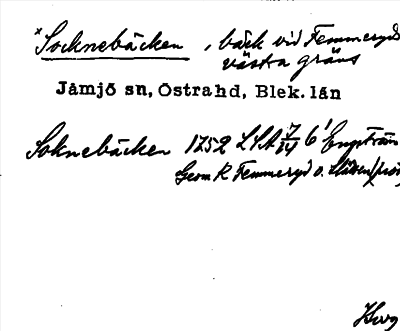 *Socknebäcken, bäck vid Femmeryds
västra gräns
Jämjö sn, Östrahd, Blek. län
Soknebäcken 1752 LSA 6' Engström
Geom K Femmeryd o.